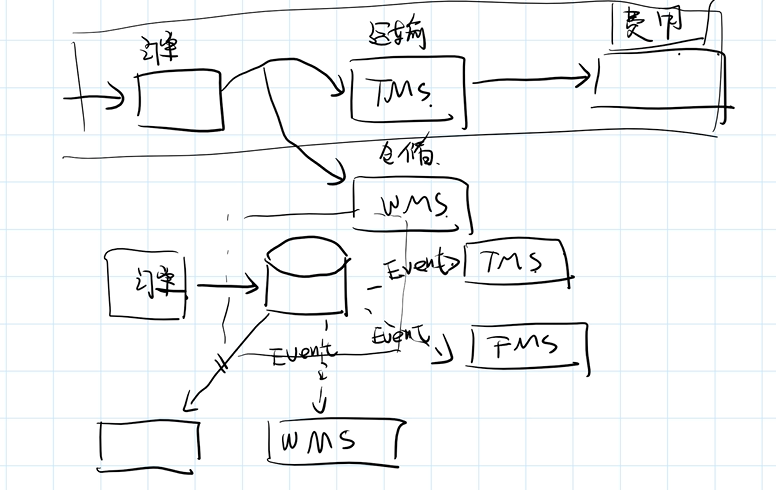 订单
运输
费用
TMS
仓储
WMS
订单
Event
TMS
Event
FMS
Event
WMS